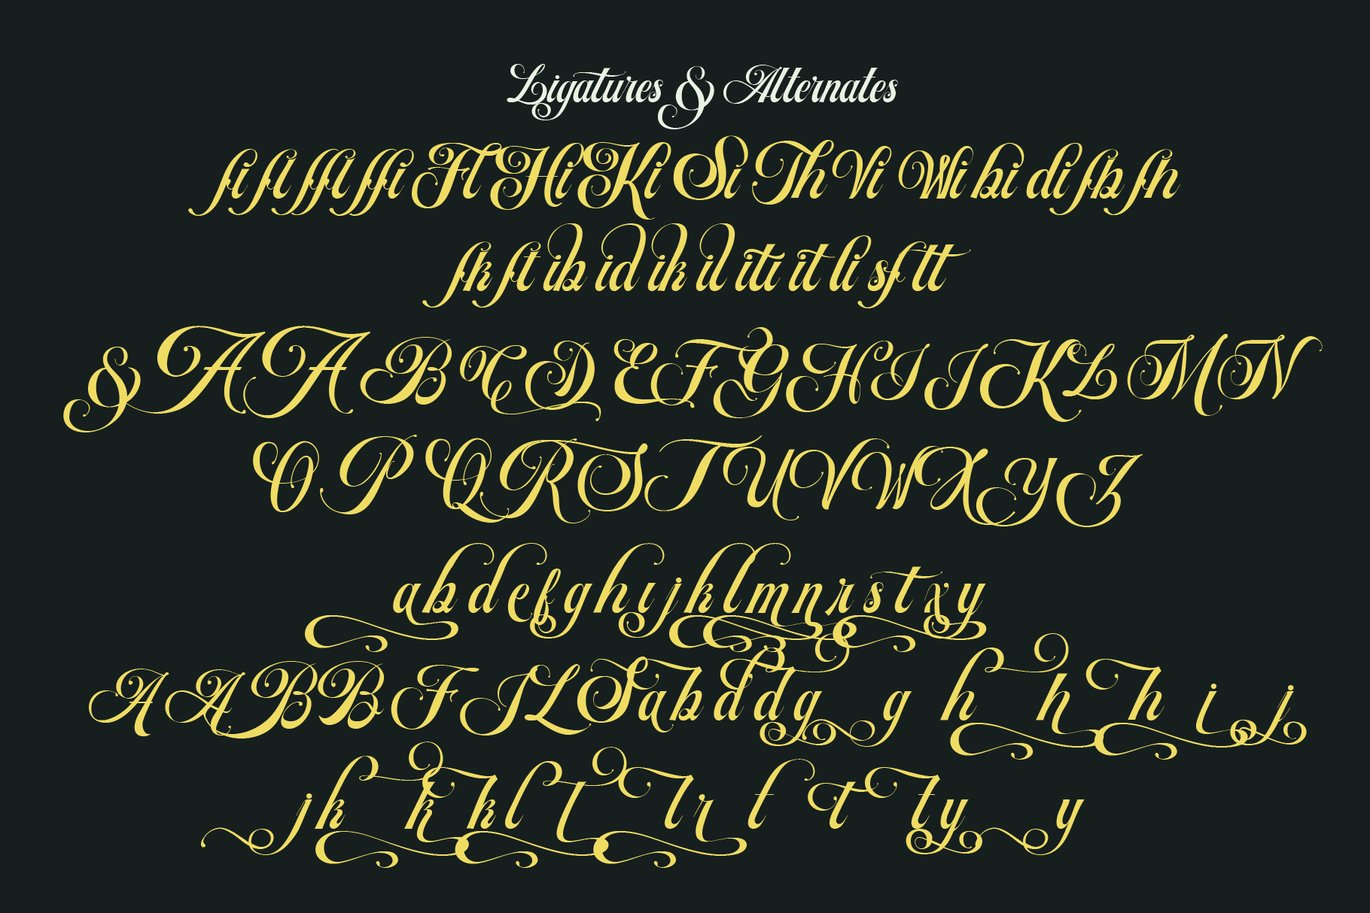 Ligatures & Alternates
fi fl ffl ffi Fl Hi Ki Si Th Vi Wi bi di fb fh
fk ft ib id ik il iti it li sf tt
& A A B C D E F G H I J K L M N
O P Q R S T U V W X Y Z
a b d e f g h i j k l m n r s t x y
A A B B F J L S a b d d g g h h h i j
j k k k l t l r t t l y y